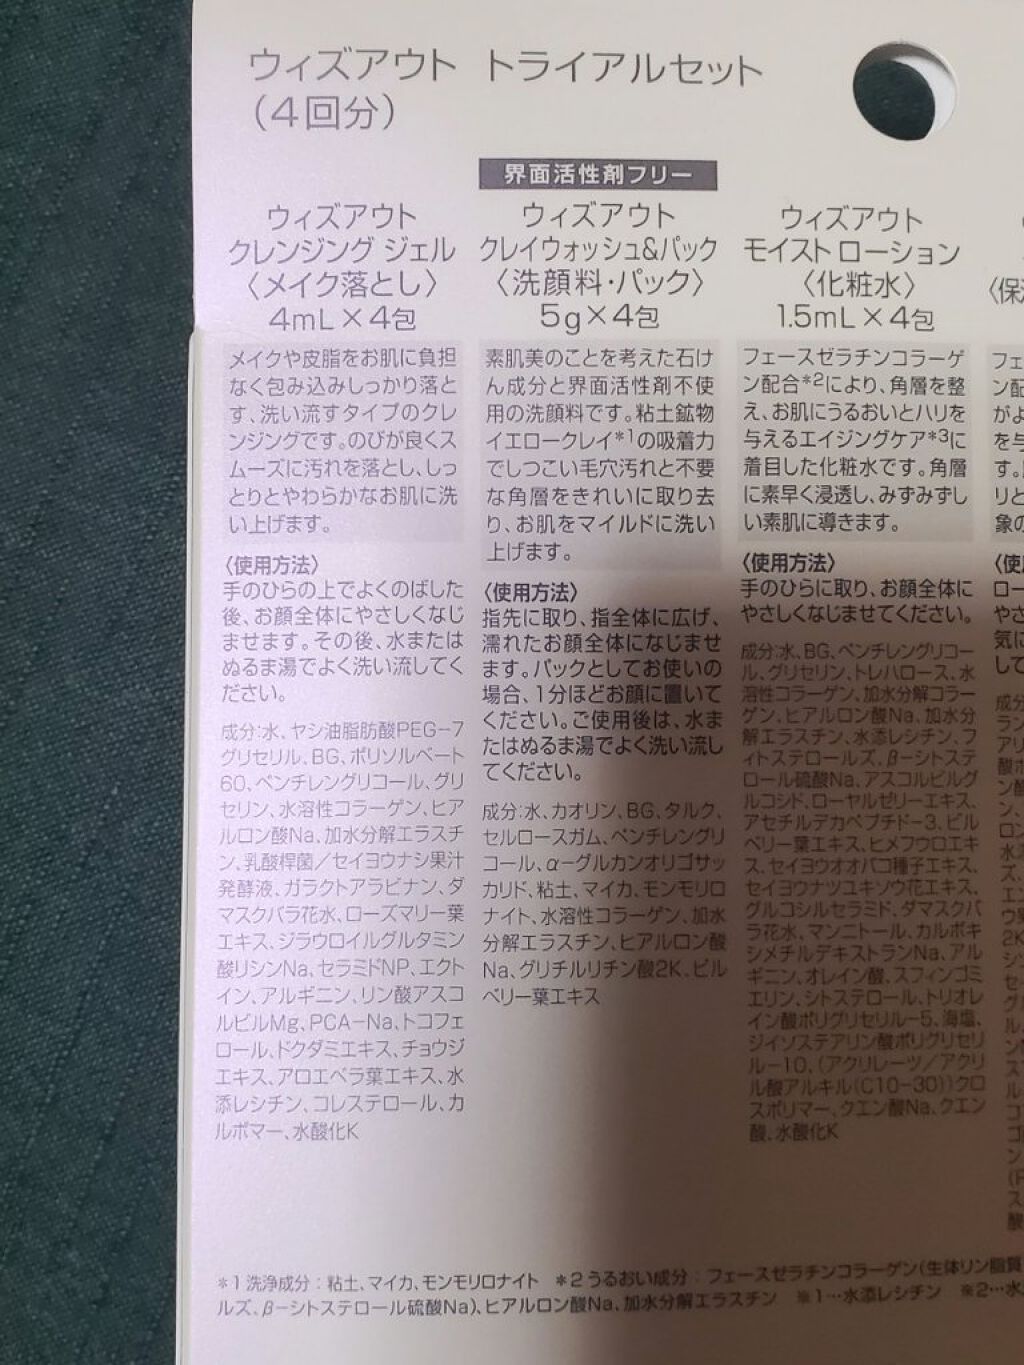 ウィズアウト トライアルセット
（4回分）
界面活性剤フリー
ウィズアウト
クレンジング ジェル
〈メイク落とし〉
4mL×4包
メイクや皮脂をお肌に負担
なく包み込みしっかり落と
す、洗い流すタイプのクレ
ンジングです。のびが良くス
ムーズに汚れを落とし、しっ
とりとやわらかなお肌に洗
い上げます。
〈使用方法〉
手のひらの上でよくのばした
後、お顔全体にやさしくなじ
ませます。その後、水または
ぬるま湯でよく洗い流してく
ださい。
成分:水、ヤシ油脂肪酸PEG-7
グリセリル、BG、ポリソルベート
60、ペンチレングリコール、グリ
セリン、水溶性コラーゲン、ヒア
ルロン酸Na、加水分解エラスチ
ン、乳酸桿菌／セイヨウナシ果汁
発酵液、ガラクトアラビナン、ダ
マスクバラ花水、ローズマリー葉
エキス、ジラウロイルグルタミン
酸リシンNa、セラミドNP、エクト
イン、アルギニン、リン酸アスコ
ルビルMg、PCA-Na、トコフェ
ロール、ドクダミエキス、チョウジ
エキス、アロエベラ葉エキス、水
添レシチン、コレステロール、カ
ルボマー、水酸化K
ウィズアウト
クレイウォッシュ&パック
〈洗顔料・パック〉
5g×4包
素肌美のことを考えた石け
ん成分と界面活性剤不使
用の洗顔料です。粘土鉱物
イエロークレイ*1の吸着力
でしつこい毛穴汚れと不要
な角層をきれいに取り去
り、お肌をマイルドに洗い
上げます。
〈使用方法〉
指先に取り、指全体に広げ、
濡れたお顔全体になじませ
ます。パックとしてお使いの
場合、1分ほどお顔に置いて
ください。ご使用後は、水ま
たはぬるま湯でよく洗い流し
てください。
成分:水、カオリン、BG、タルク、
セルロースガム、ペンチレングリ
コール、α-グルカンオリゴサッ
カリド、粘土、マイカ、モンモリロ
ナイト、水溶性コラーゲン、加水
分解エラスチン、ヒアルロン酸
Na、グリチルリチン酸2K、ビル
ベリー葉エキス
ウィズアウト
モイストローション
〈化粧水〉
1.5mL×4包
フェースゼラチンコラーゲ
ン配合*2により、角層を整
え、お肌にうるおいとハリを
与えるエイジングケア*3に
着目した化粧水です。角層
に素早く浸透し、みずみずし
い素肌に導きます。
〈使用方法〉
手のひらに取り、お顔全体に
やさしくなじませてください。
成分:水、BG、ペンチレングリコー
ル、グリセリン、トレハロース、水
溶性コラーゲン、加水分解コラー
ゲン、ヒアルロン酸Na、加水分
解エラスチン、水添レシチン、フ
ィトステロールズ、β-シトステ
ロール硫酸Na、アスコルビルグ
ルコシド、ローヤルゼリーエキス、
アセチルデカペプチド-3、ビル
ベリー葉エキス、ヒメフウロエキ
ス、セイヨウオオバコ種子エキス、
セイヨウナツユキソウ花エキス、
グルコシルセラミド、ダマスクバ
ラ花水、マンニトール、カルボキ
シメチルデキストランNa、アル
ギニン、オレイン酸、スフィンゴミ
エリン、シトステロール、トリオレ
イン酸ポリグリセリル-5、海塩、
ジイソステアリン酸ポリグリセリ
ル-10、(アクリレーツ／アクリ
ル酸アルキル(C10-30))クロ
スポリマー、クエン酸Na、クエン
酸、水酸化K
*1 洗浄成分：粘土、マイカ、モンモリロナイト *2 うるおい成分：フェースゼラチンコラーゲン(生体リン脂質
ルズ、β-シトステロール硫酸Na)、ヒアルロン酸Na、加水分解エラスチン ※1…水添レシチン ※2…水